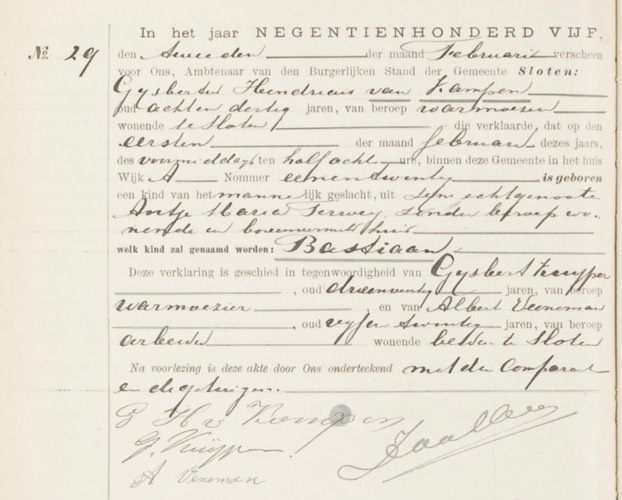 In het jaar NEGENTIENHONDERD VIJF,
No. 29 den tweeden der maand Februari verscheen
voor Ons, Ambtenaar van den Burgerlijken Stand der Gemeente Sloten:
Gysbertus Hendricus van Kampen
oud acht en dertig jaren, van beroep warmoezier
wonende te Sloten die verklaarde, dat op den
eersten der maand februari dezes jaars,
des voormiddags ten half acht ure, binnen deze Gemeente in het huis
Wijk A Nommer eenentwintig is geboren
een kind van het mannelijk geslacht, uit zijn echtgenoote
Antje Maria Terwey, zonder beroep wo-
nende in bovenvermeld huis
welk kind zal genaamd worden: Bastiaan
Deze verklaring is geschied in tegenwoordigheid van Gysbert Kuyper
, oud drieenveertig jaren, van beroep
warmoezier , en van Albert Veeneman
, oud vyf en twintig jaren, van beroep
arbeider wonende beiden te Sloten
Na voorlezing is deze akte door Ons onderteekend met den Comparant
en de getuigen.
G H v Kampen
G. Kuyper.
A Veneman